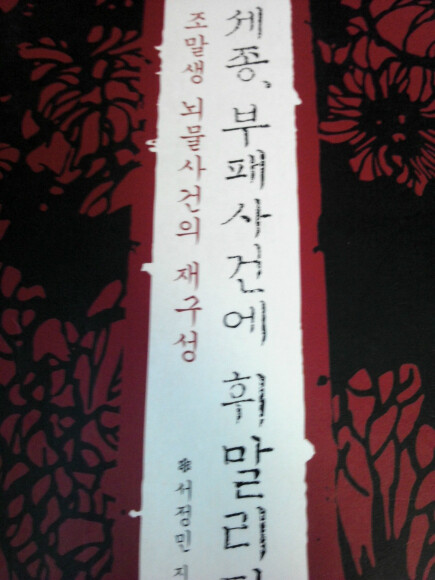 세종, 부패사건에 휘말리다
조말생 뇌물사건의 재구성
서정민 지